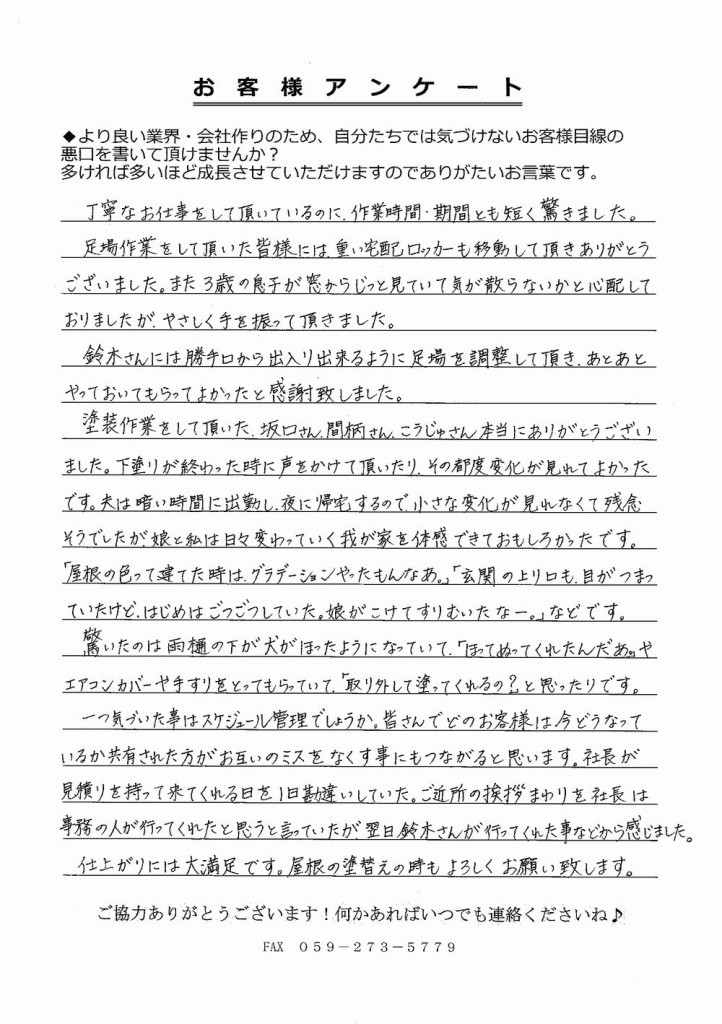 お客様アンケート
◆より良い業界・会社作りのため、自分たちでは気づけないお客様目線の
悪口を書いて頂けませんか？
多ければ多いほど成長させていただけますのでありがたいお言葉です。
丁寧なお仕事をして頂いているのに、作業時間・期間とも短く驚きました。
足場作業をして頂いた皆様には、重い宅配ロッカーも移動して頂きありがとう
ございました。また3歳の息子が窓からじっと見ていて気が散らないかと心配して
おりましたが、やさしく手を振って頂きました。
鈴木さんには勝手口から出入り出来るように足場を調整して頂き、あとあと
やっておいてもらってよかったと感謝致しました。
塗装作業をして頂いた、坂口さん、間柄さん、こうじゅさん本当にありがとうござい
ました。下塗りが終わった時に声をかけて頂いたり、その都度変化が見れてよかった
です。夫は暗い時間に出勤し、夜に帰宅するので、小さな変化が見れなくて残念
そうでしたが、娘と私は日々変わっていく我が家を体感できておもしろかったです。
「屋根の色って建てた時は、グラデーションやったもんなあ。」「玄関の上り口も、目がつまっ
ていたけど、はじめはごつごつしていた。娘がこけてすりむいたなー。」などです。
驚いたのは雨樋の下が犬がほったようになっていて、「ほってぬってくれたんだあ。」や
エアコンカバーや手すりをとってもらっていて、「取り外して塗ってくれるの？」と思ったりです。
一つ気づいた事はスケジュール管理でしょうか。皆さんでどのお客様は今どうなって
いるか共有された方がお互いのミスをなくす事にもつながると思います。社長が
見積りを持って来てくれる日を1日勘違いしていた。ご近所の挨拶まわりを社長は
事務の人が行ってくれたと思うと言っていたが翌日鈴木さんが行ってくれた事などから感じました。
仕上がりには大満足です。屋根の塗替えの時もよろしくお願い致します。
ご協力ありがとうございます！何かあればいつでも連絡くださいね♪
FAX　０５９－２７３－５７７９